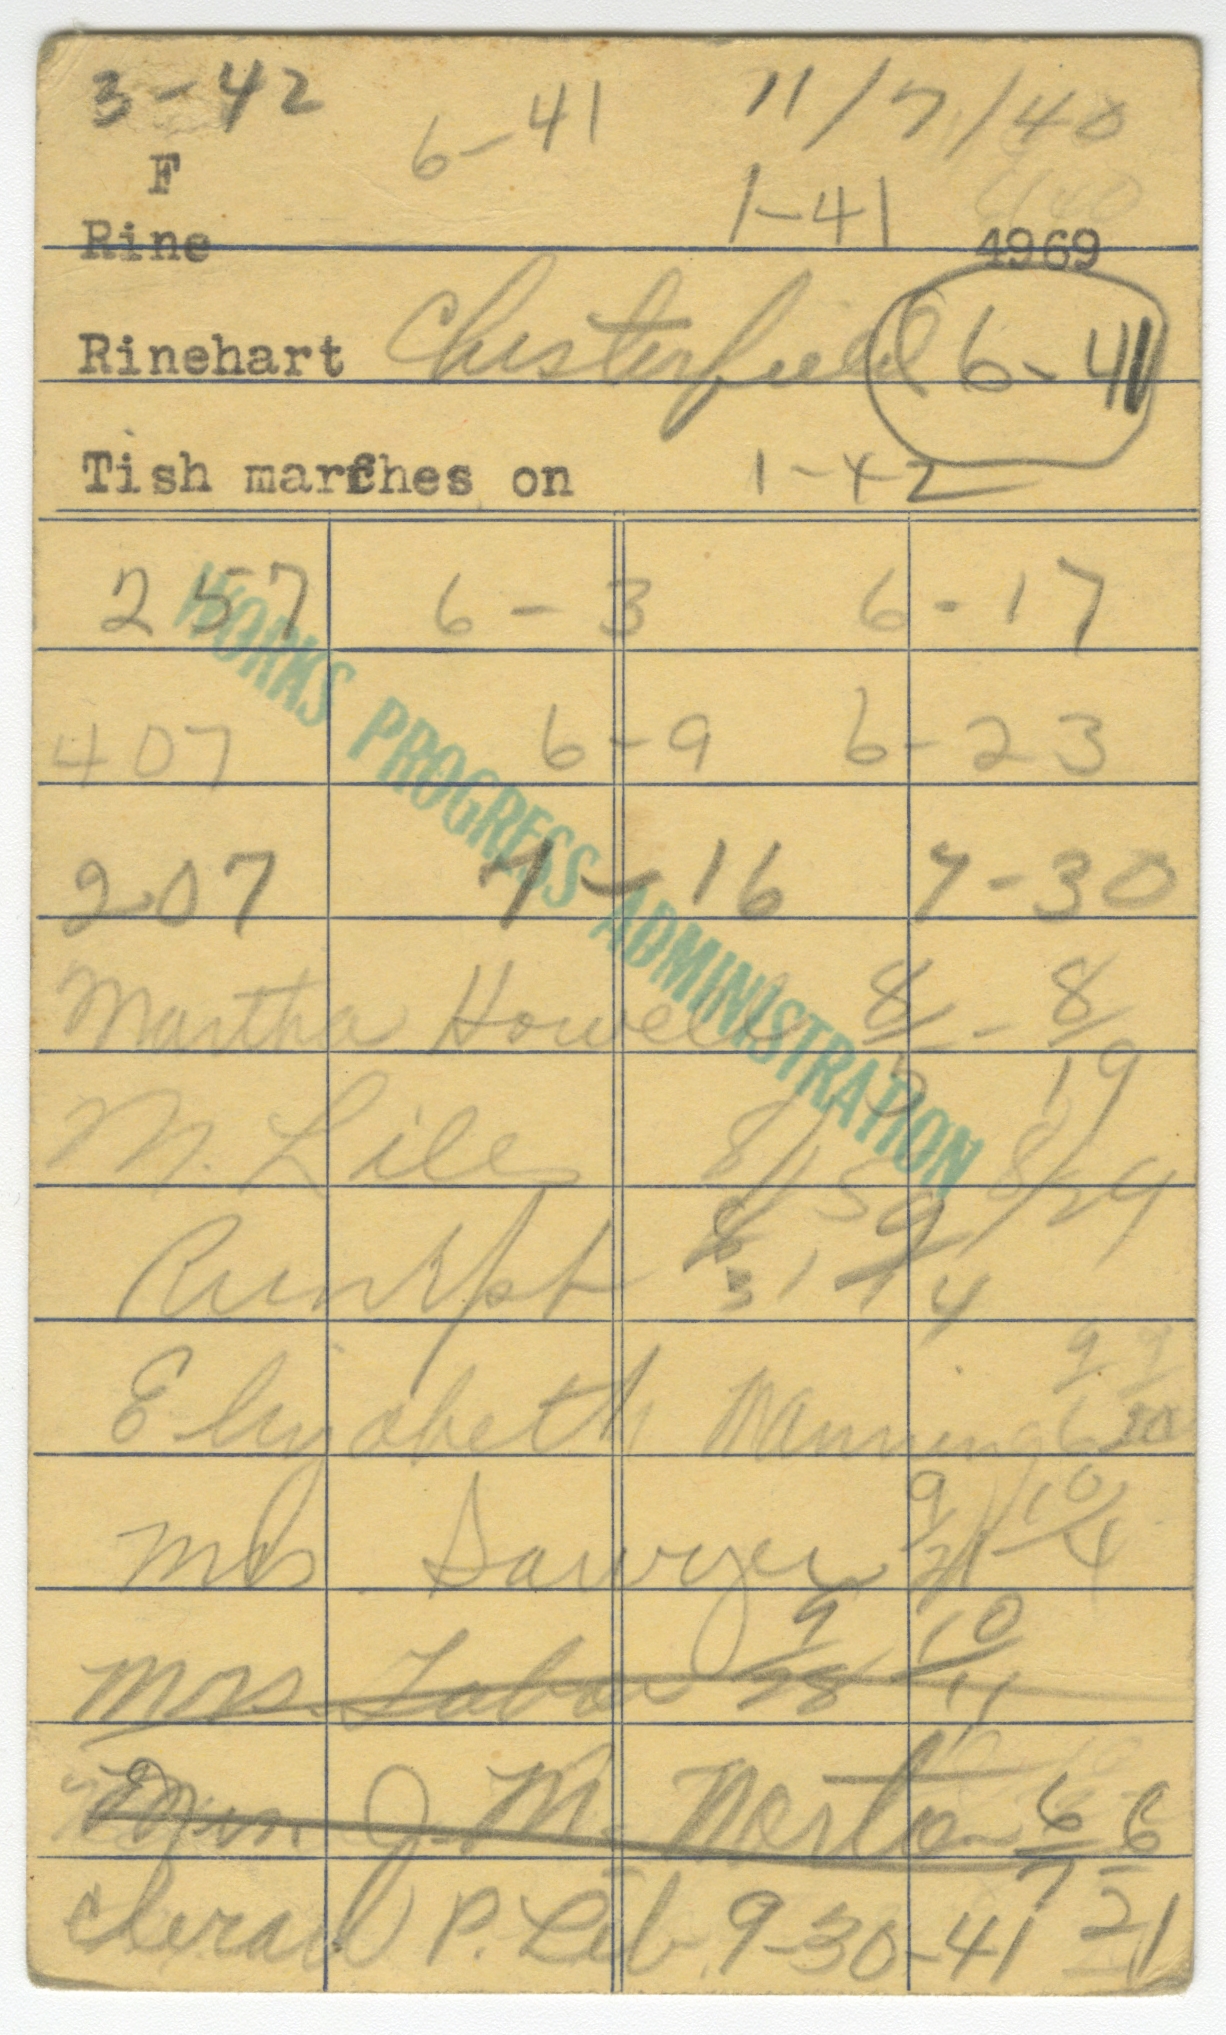 3-42 6-41 11/7/40
F 1-41
Rine 4969
Rinehart Chesterfield 6-41
Tish marches on 1-42
257 6-3 6-17
407 6-9 6-23
207 7-16 7-30
WORKS PROGRESS ADMINISTRATION
Martha Howell 8/5 - 8/19
M. Liles 8/15 8/29
8/31 9/14
Elizabeth Manning 9/6 9/20
Mrs Sawyer 9/21 10/4
Mrs. Tabor 9/28 10/11
J. M. Norton 6/7 6/21
Cheraw P. Lib. 9-30-41